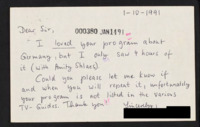 1-10-1991
Dear Sir,
000380 JAN1491
I loved your program about
Germany, but I only saw 4 hours of
it (with Emily Ehlers)
Could you please let me know if
and when you will repeat it, unfortunately
your program is not listed in the various
TV-Guides. Thank you!
Sincerely,